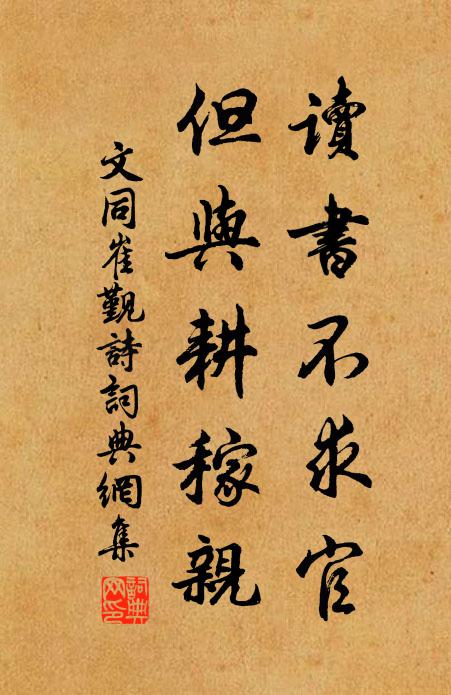 讀書不求官
但與耕稼親
文同崔觐詩詞典網集
詞典
网印